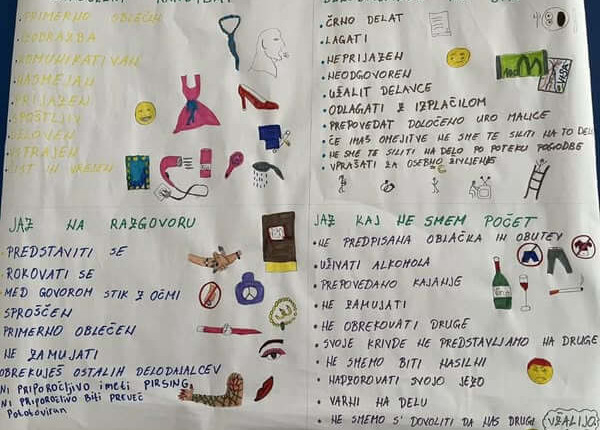 KANDIDAT
• PRIMERNO OBLEČEN
• IZOBRAZBA
• KOMUNIKATIVAN
• NASMEJAN
• PRIJAZEN
• SPOŠTLJIV
• DELOVEN
• ISTRAJEN
• ČIST IN UREJEN
• ČRNO DELAT
• LAGATI
• NEPRIJAZEN
• NEODGOVOREN
• UŽALIT DELAVCE
• ODLAGATI Z IZPLAČILOM
• PREPOVEDAT DOLOČENO URO MALICE
• ČE IMAŠ OMEJITVE NE SME TE SILITI NA TO DELO
• NE SME TE SILITI NA DELO PO POTEKU POGODBE
• VPRAŠATI ZA OSEBNO ŽIVLJENJE
JAZ NA RAZGOVORU
• PREDSTAVITI SE
• ROKOVATI SE
• MED GOVOROM STIK Z OČMI
SPROŠČEN
PRIMERNO OBLEČEN
NE ZAMUJATI
OBREKUJEŠ OSTALIH DELODAJALCEV
NI PRIPOROČLJIVO imeti PIRSING
NI PRIPOROČLJIVO BITI PREVEČ
Potetoviran
JAZ KAJ NE SMEM POČET
• NE PREDPISANA OBLAČKA IN OBUTEV
• UŽIVATI ALKOHOLA
• PREPOVEDANO KAJANJE
• NE ZAMUJATI
• NE OBREKOVATI DRUGE
• SVOJE KRIVDE NE PREDSTAVLJAMO NA DRUGE
• NE SMEMO BITI NASILNI
• NADZOROVATI SVOJO JEZO
• VARNI NA DELU
• NE SMEMO SI DOVOLITI DA NAS DRUGI UŽALIJO